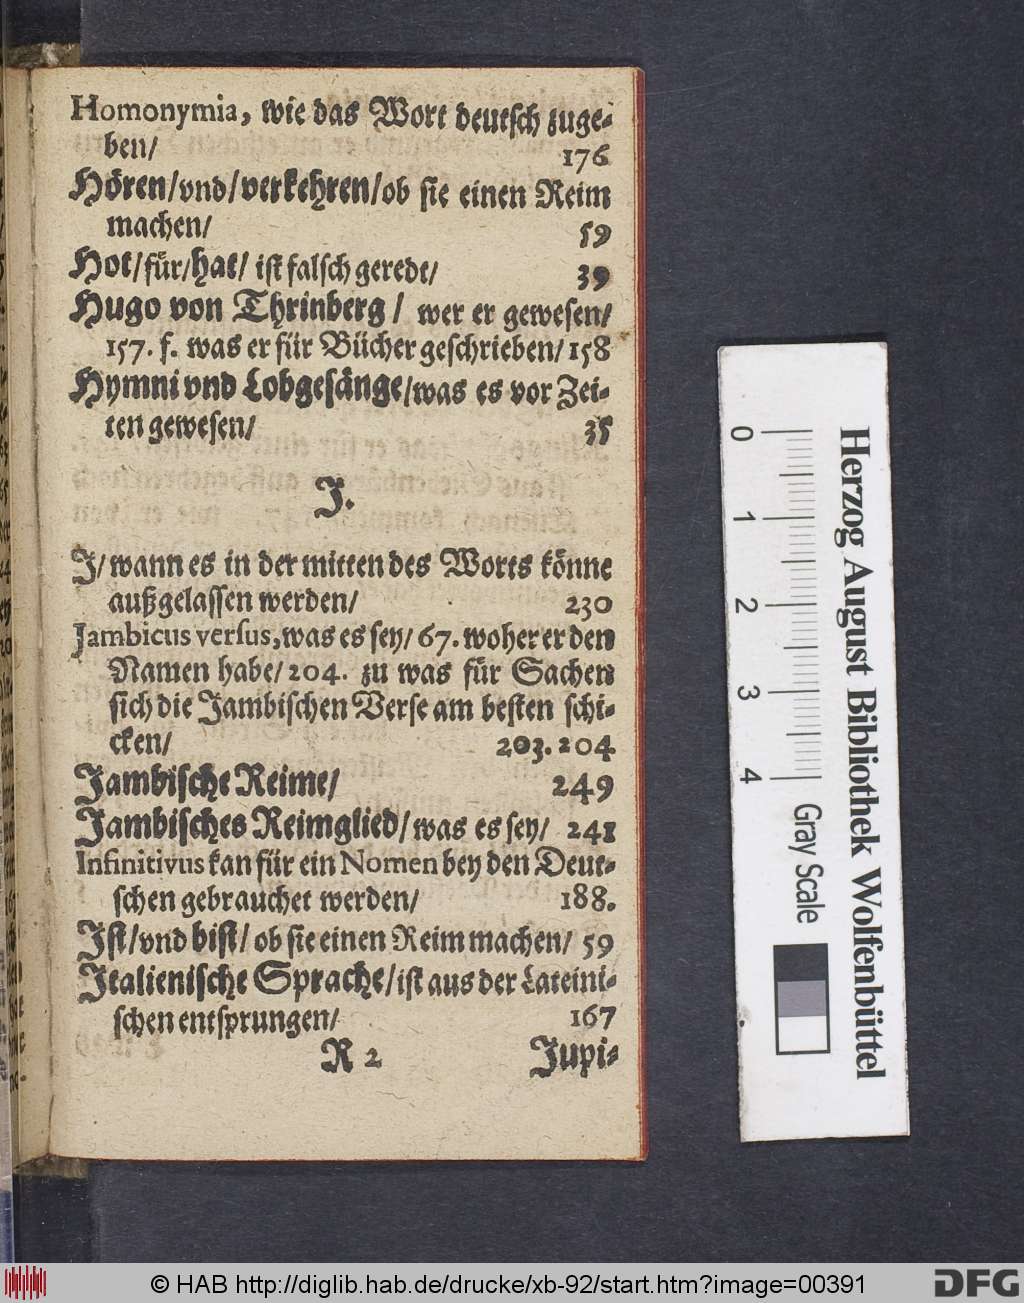 Homonymia, wie das Wort deutsch zuge-
ben/ 176
Hören/vnd/verkehren/ob sie einen Reim
machen/ 59
Hot/für/hat/ ist falsch geredt/ 39
Hugo von Thrinberg / wer er gewesen/
157. f. was er für Bücher geschrieben/ 158
Hymni vnd Lobgesänge/was es vor Zei-
ten gewesen/ 35
J.
J/ wann es in der mitten des Worts könne
außgelassen werden/ 230
Jambicus versus, was es sey/ 67. woher er den
Namen habe/ 204. zu was für Sachen
sich die Jambischen Verse am besten schi-
cken/ 203. 204
Jambische Reime/ 249
Jambisches Reimglied/was es sey/ 241
Infinitivus kan für ein Nomen bey den Deut-
schen gebrauchet werden/ 188.
Jst/vnd bist/ ob sie einen Reim machen/ 59
Jtalienische Sprache/ist aus der Lateini-
schen entsprungen/ 167
R 2 Jupi-
Herzog August Bibliothek Wolfenbüttel
0 1 2 3 4 Gray Scale
© HAB http://diglib.hab.de/drucke/xb-92/start.htm?image=00391
DFG